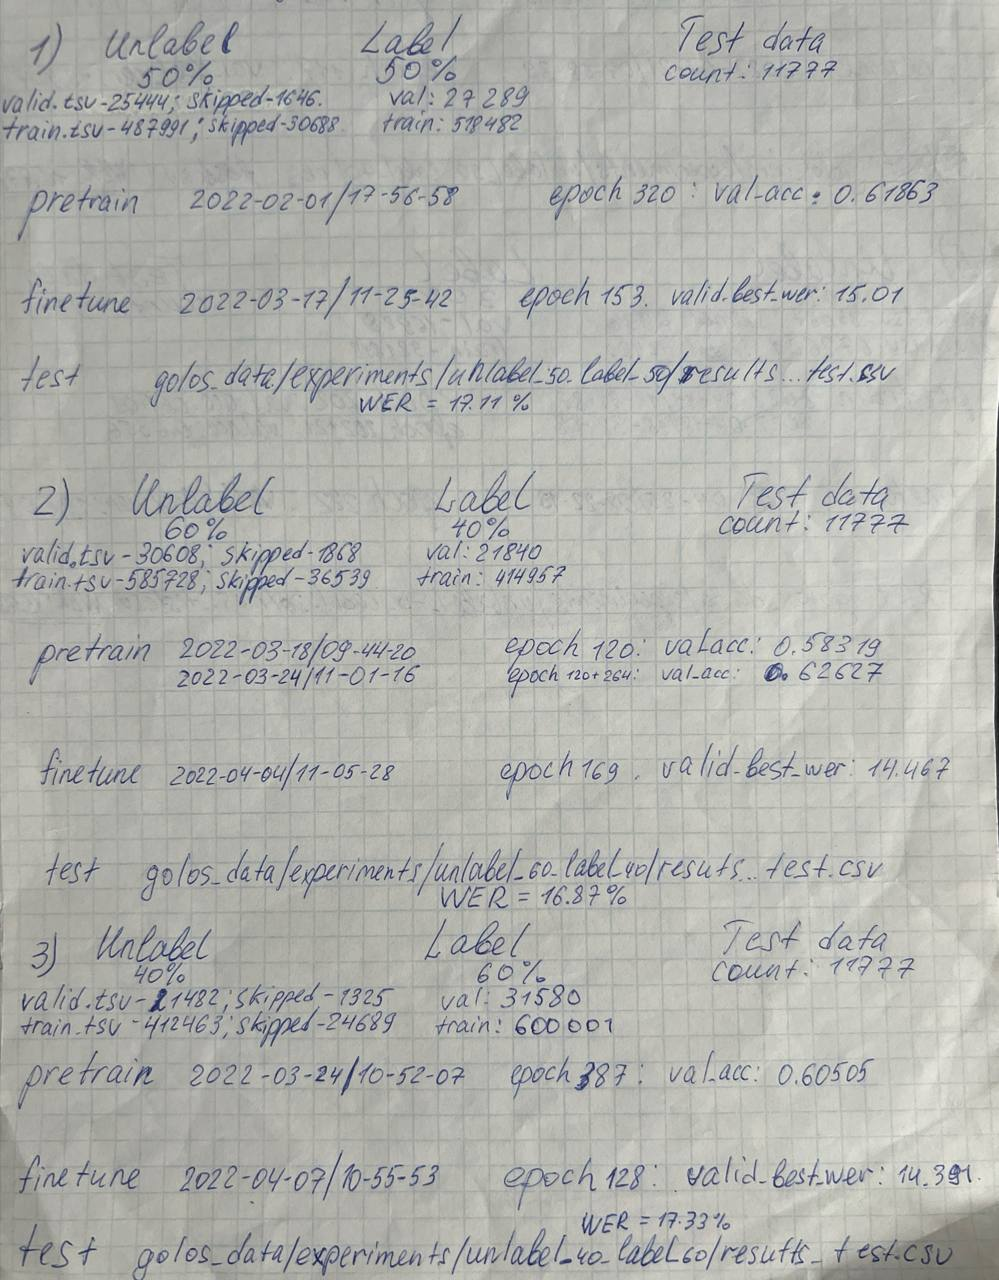 1) Unlabel Label Test data
50% 50% count: 11777
valid.tsv-25444; skipped-1646. val: 27289
train.tsv-487991; skipped-30688 train: 518482
pretrain 2022-02-01/17-56-58 epoch 320: val-acc: 0.61863
finetune 2022-03-17/11-25-42 epoch 153. valid.best-wer: 15.01
test golos_data/experiments/unlabel_50_label_50/results...test.csv
WER = 17.11%
2) Unlabel Label Test data
60% 40% count: 11777
valid.tsv-30608; skipped-1868 val: 21840
train.tsv-585728; skipped-36539 train: 414957
pretrain 2022-03-18/09-44-20 epoch 120: val.acc: 0.58319
2022-03-24/11-01-16 epoch 120+264: val-acc: 0.62627
finetune 2022-04-04/11-05-28 epoch 169. valid-best-wer: 14.467
test golos_data/experiments/unlabel_60_label_40/resuts...test.csv
WER = 16.87%
3) Unlabel Label Test data
40% 60% count: 11777
valid.tsv-21482; skipped-1325 val: 31580
train.tsv-412463; skipped-24689 train: 600001
pretrain 2022-03-24/10-52-07 epoch 387: val.acc: 0.60505
finetune 2022-04-07/10-55-53 epoch 128: valid-best.wer: 14.391.
WER = 17.33%
test golos_data/experiments/unlabel_40_label_60/results_test.csv